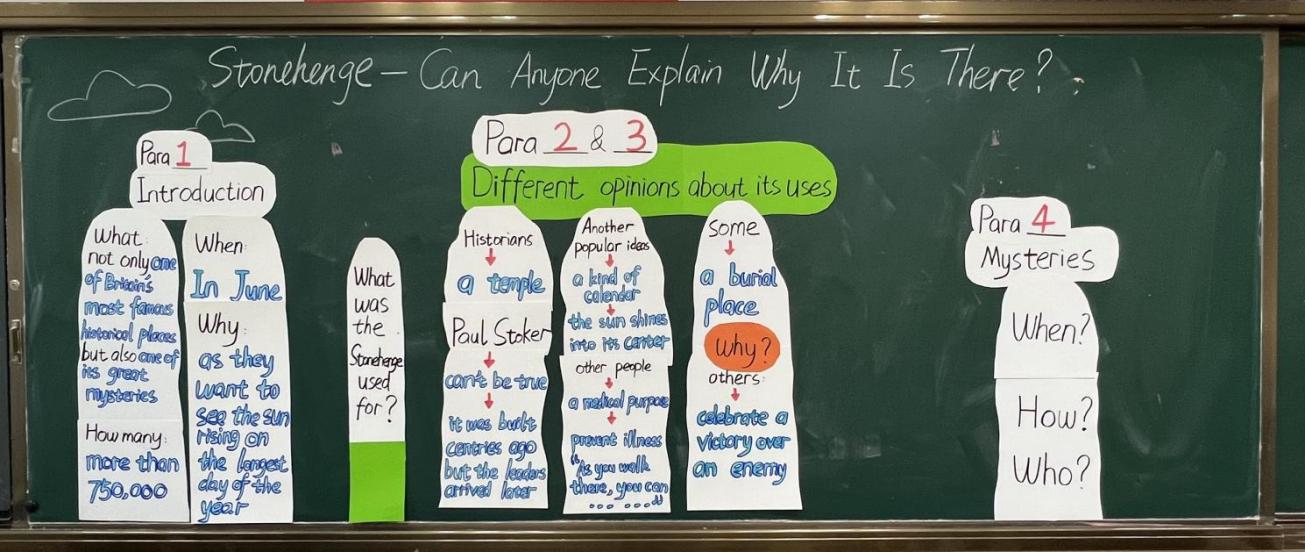 Stonehenge — Can Anyone Explain Why It Is There?
Para 1
Introduction
What:
not only one
of Britain's
most famous
historical places
but also one of
its great
mysteries
How many:
more than
750,000
When:
In June
Why:
as they
want to
see the sun
rising on
the longest
day of the
year
What
was
the
Stonehenge
used
for?
Para 2 & 3
Different opinions about its uses
Historians
a temple
Paul Stoker
can't be true
it was built
centries ago
but the leaders
arrived later
Another
popular ideas
a kind of
calendar
the sun shines
into its center
other people
a medical purpose
prevent illness
"As you walk
there, you can
... ..."
Some
a burial
place
Why?
others:
celebrate a
victory over
an enemy
Para 4
Mysteries
When?
How?
Who?